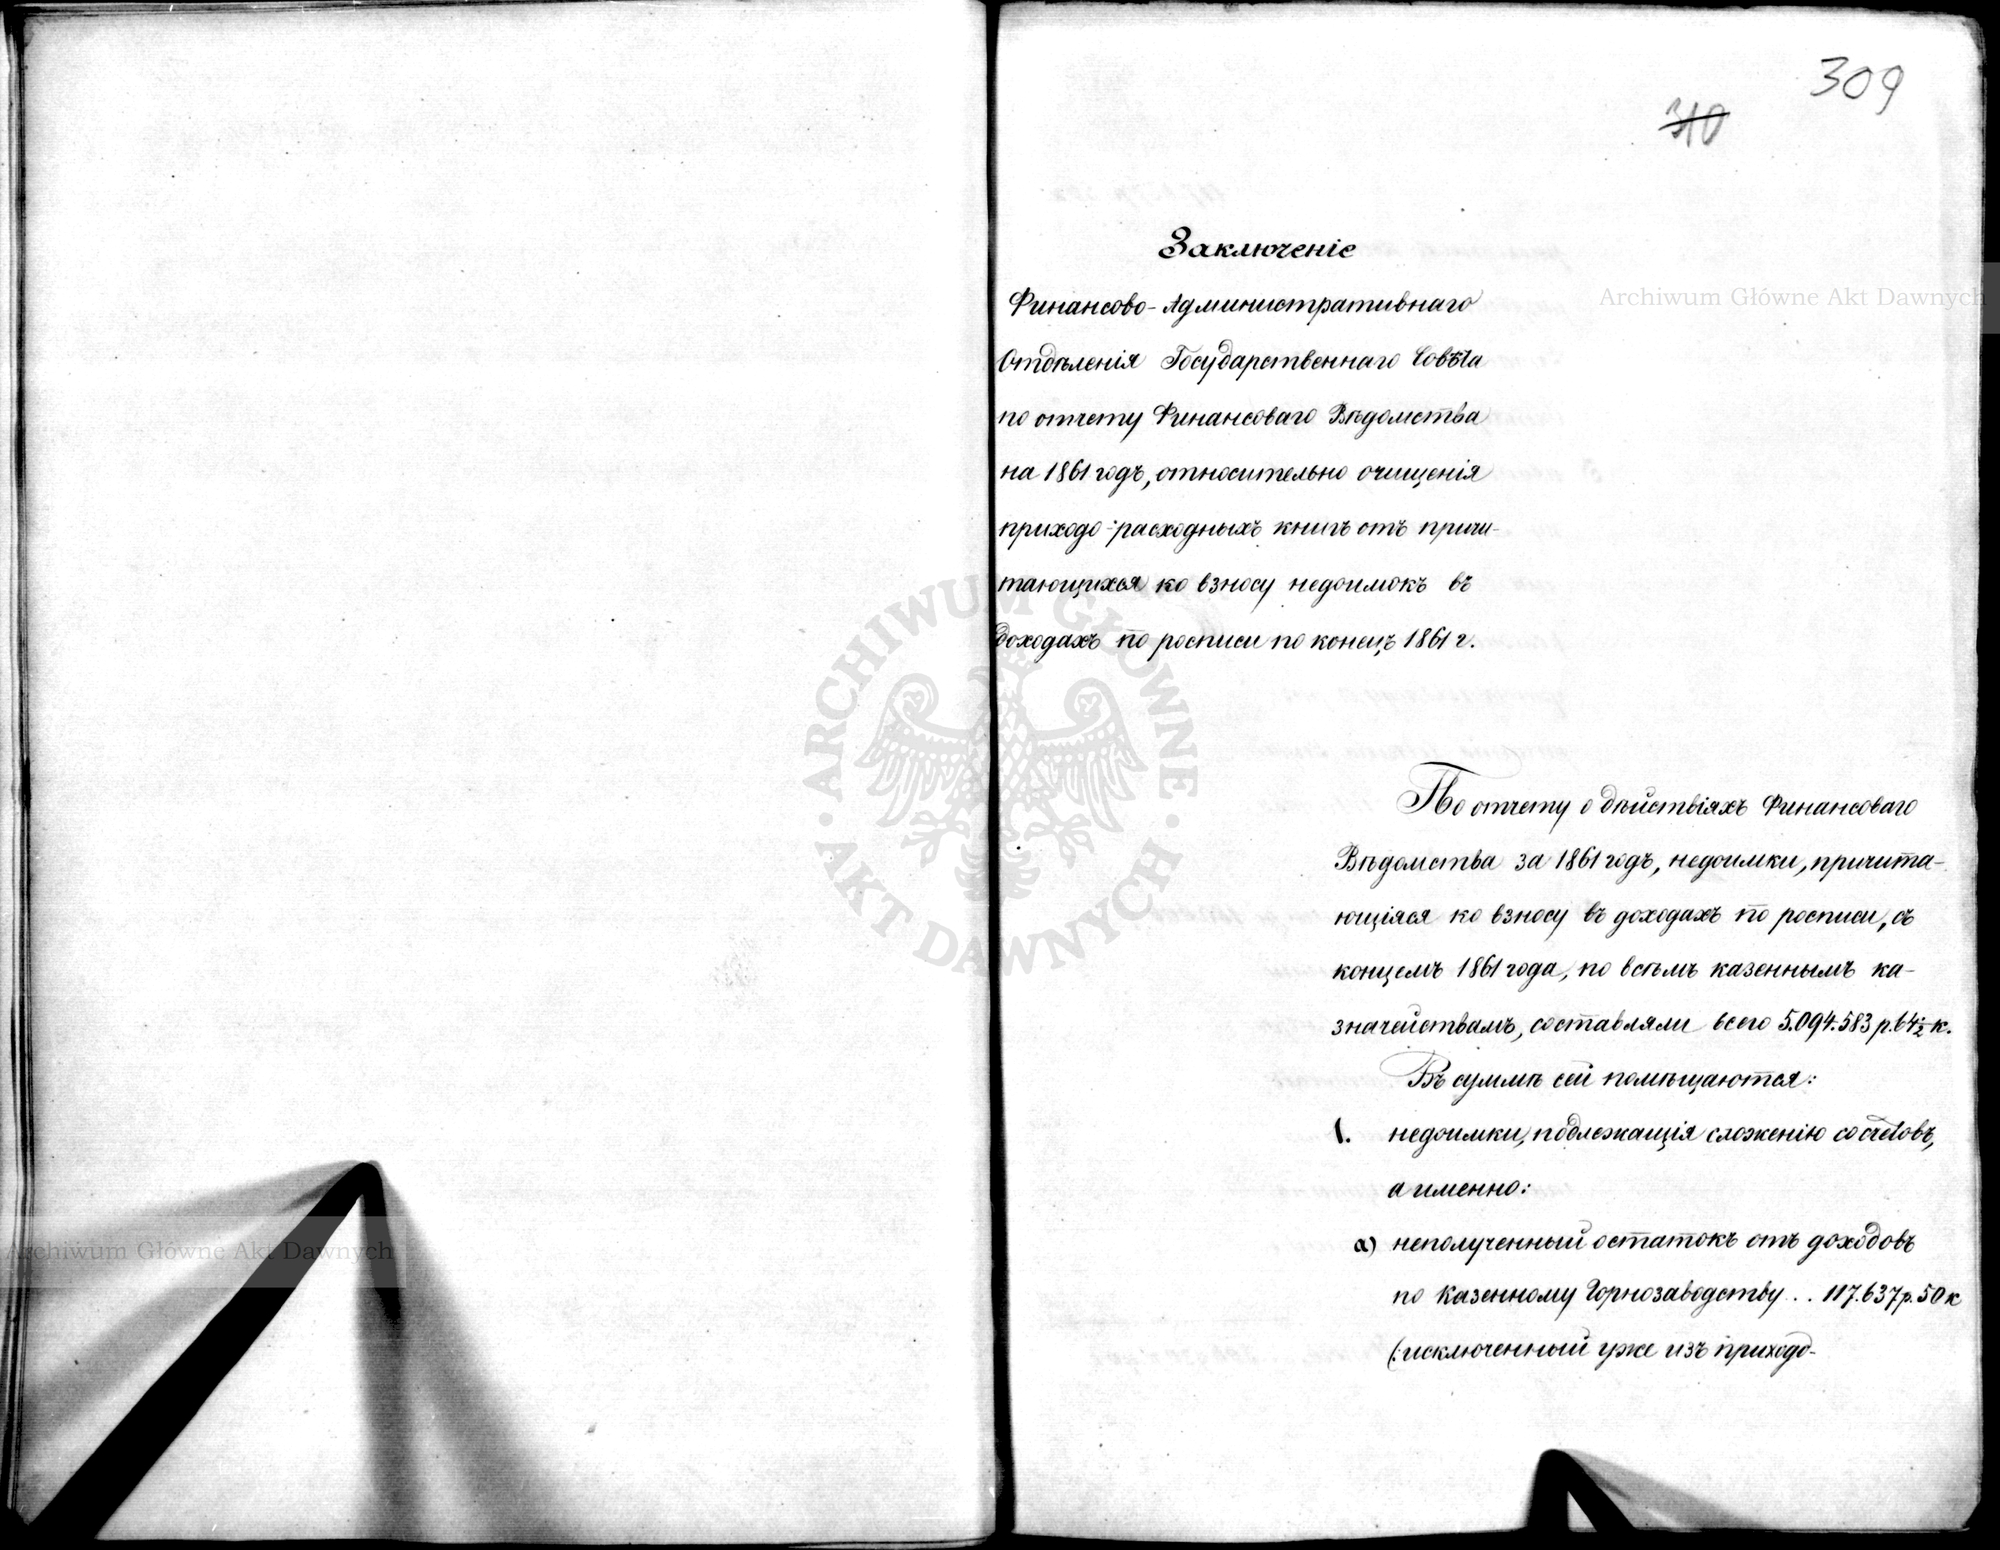 309
310
Заключеніе
Финансово-Административнаго
Отдѣленія Государственнаго Совѣта
по отчету Финансоваго Вѣдомства
на 1861 годъ, относительно очищенія
приходо-расходныхъ книгъ отъ причи-
тающихся ко взносу недоимокъ въ
доходахъ по росписи по конецъ 1861 г.
По отчету о дѣйствіяхъ Финансоваго
Вѣдомства за 1861 годъ, недоимки, причита-
ющіяся ко взносу въ доходахъ по росписи, съ
концемъ 1861 года, по всѣмъ казеннымъ ка-
значействамъ, составляли всего 5.094.583 р. 64½ к.
Въ суммѣ сей помѣщаются:
1. недоимки, подлежащія сложенію со счетовъ,
а именно:
а) неполученный остатокъ отъ доходовъ
по Казенному Горнозаводству . . 117.637 р. 50 к
(:исключенный уже изъ приходо-
Archiwum Główne Akt Dawnych
Archiwum Główne Akt Dawnych
ARCHIWUM GŁÓWNE · AKT DAWNYCH ·